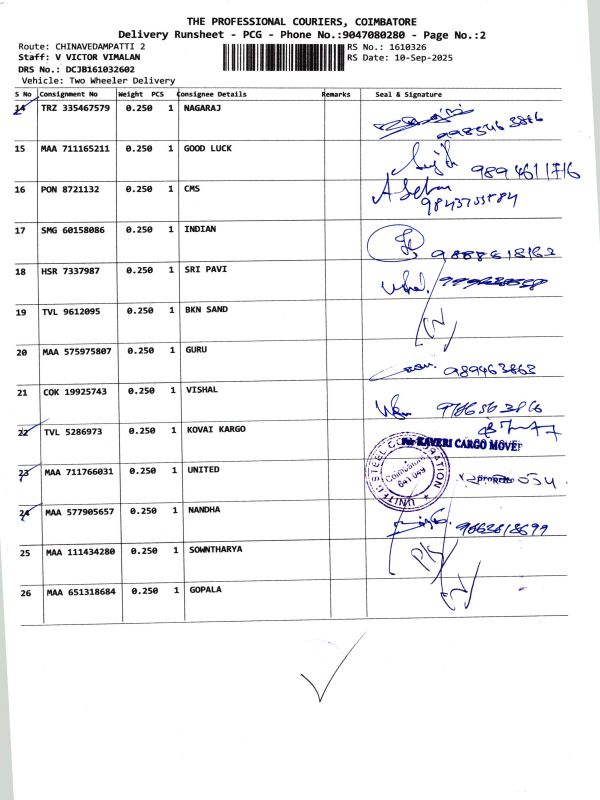 THE PROFESSIONAL COURIERS, COIMBATORE
Delivery Runsheet - PCG - Phone No.:9047080280 - Page No.:2
Route: CHINAVEDAMPATTI 2 RS No.: 1610326
Staff: V VICTOR VIMALAN RS Date: 10-Sep-2025
DRS No.: DCJB161032602
Vehicle: Two Wheeler Delivery
S No Consignment No Weight PCS Consignee Details Remarks Seal & Signature
14 TRZ 335467579 0.250 1 NAGARAJ
15 MAA 711165211 0.250 1 GOOD LUCK
16 PON 8721132 0.250 1 CMS
17 SMG 60158086 0.250 1 INDIAN
18 HSR 7337987 0.250 1 SRI PAVI
19 TVL 9612095 0.250 1 BKN SAND
20 MAA 575975807 0.250 1 GURU 989463863
21 COK 19925743 0.250 1 VISHAL
22 TVL 5286973 0.250 1 KOVAI KARGO For KAVERI CARGO MOVER
23 MAA 711766031 0.250 1 UNITED UNITED STEEL CORPORATION Coimbatore 641 049
24 MAA 577905657 0.250 1 NANDHA
25 MAA 111434280 0.250 1 SOWNTHARYA
26 MAA 651318684 0.250 1 GOPALA